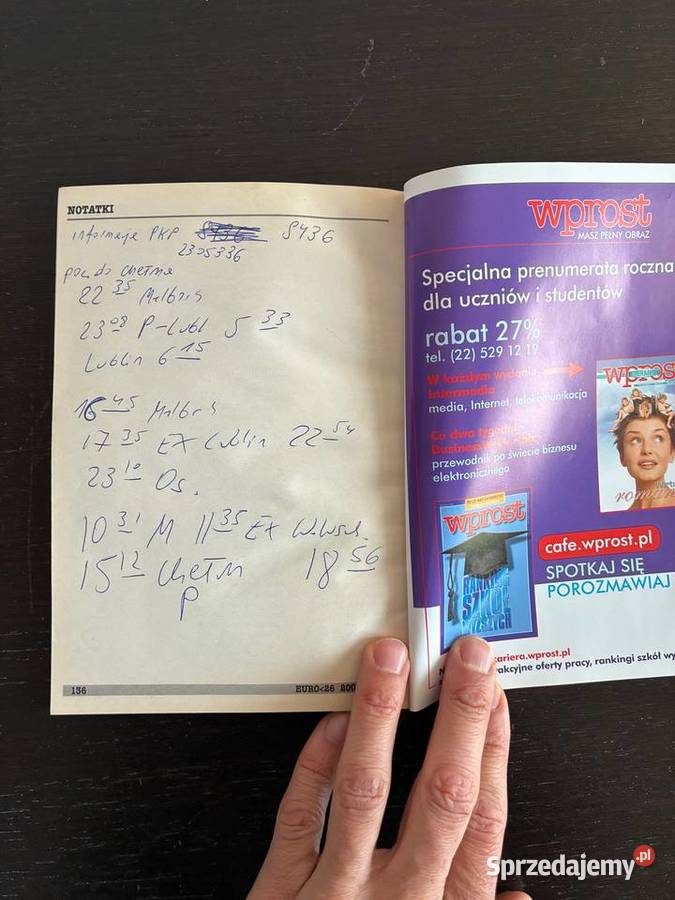 NOTATKI
informacje PKP 9436 9436
2305336
poc. do Chełma
22 35 Malbork
23 08 P-Lubl 5 33
Lublin 6 15
16 45 Malbork
17 35 EX Lublin 22 54
23 10 Os.
10 31 M 11 35 Ex
15 12 Chełm 18 56
P
136
EURO<26 200
wprost
MASZ PEŁNY OBRAZ
Specjalna prenumerata roczna
dla uczniów i studentów
rabat 27%
tel. (22) 529 12 19
W każdym wydaniu
Intermedia
media, Internet, telekomunikacja
Co dwa tygodnie
przewodnik po świecie biznesu
elektronicznego
wprost
wprost
cafe.wprost.pl
SPOTKAJ SIĘ
POROZMAWIAJ
kariera.wprost.pl
rakcyjne oferty pracy, rankingi szkół wy
Sprzedajemy.pl